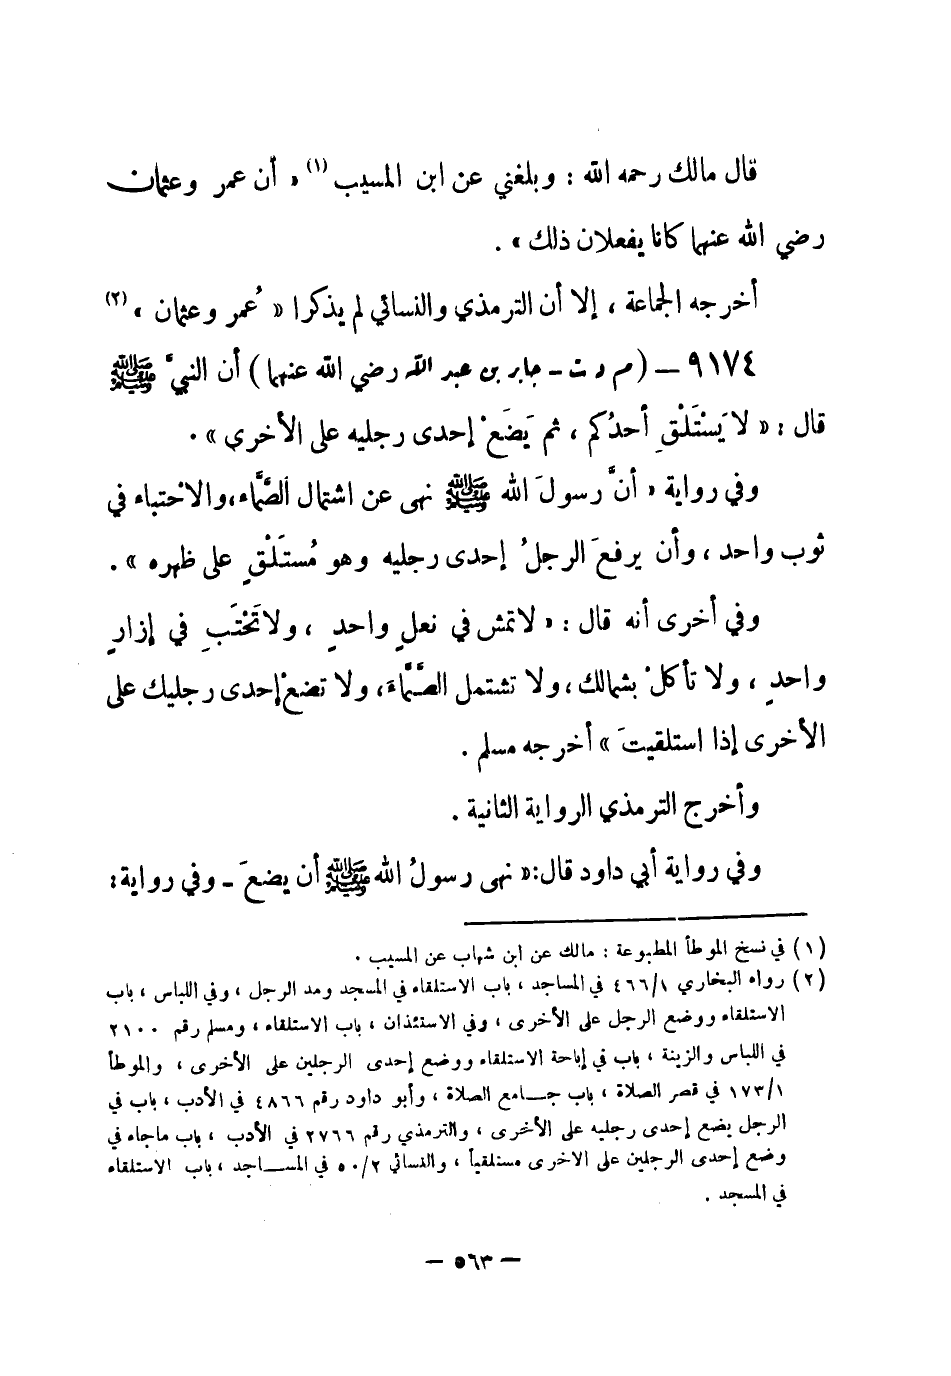 قال مالك رحمه الله : وبلغني عن ابن المسيب (١) « أن عمر وعثمان
رضي الله عنهما كانا يفعلان ذلك » .
أخرجه الجماعة ، إلا أن الترمذي والنسائي لم يذكرا « عُمر وعثمان » (٢)
٩١٧٤ – (م د ت - جابر بن عبد الله رضي الله عنهما) أن النبيَّ ﷺ
قال : « لا يَسْتَلْقِ أحدُكم ، ثم يَضَعْ إحدى رجليه على الأخرى » .
وفي رواية « أنَّ رسولَ الله ﷺ نهى عن اشتمال الصَّمَّاء ، والاحتباء في
ثوب واحد ، وأن يرفعَ الرجلُ إحدى رجليه وهو مُستَلْقٍ على ظهره » .
وفي أخرى أنه قال : « لا تمش في نعلٍ واحدٍ ، ولا تَحْتَبِ في إزارٍ
واحدٍ ، ولا تأكلْ بشمالك ، ولا تشتمل الصَّمَّاءَ ، ولا تضعْ إحدى رجليك على
الأخرى إذا استلقيتَ » أخرجه مسلم .
وأخرج الترمذي الرواية الثانية .
وفي رواية أبي داود قال : « نهى رسولُ الله ﷺ أن يضعَ - وفي رواية :
(١) في نسخ الموطأ المطبوعة : مالك عن ابن شهاب عن المسيب .
(٢) رواه البخاري ٤٦٦/١ في المساجد ، باب الاستلقاء في المسجد ومد الرجل ، وفي اللباس ، باب
الاستلقاء ووضع الرجل على الأخرى ، وفي الاستئذان ، باب الاستلقاء ، ومسلم رقم ٢١٠٠
في اللباس والزينة ، باب في إباحة الاستلقاء ووضع إحدى الرجلين على الأخرى ، والموطأ
١٧٣/١ في قصر الصلاة ، باب جامع الصلاة ، وأبو داود رقم ٤٨٦٦ في الأدب ، باب في
الرجل يضع إحدى رجليه على الأخرى ، والترمذي رقم ٢٧٦٦ في الأدب ، باب ماجاء في
وضع إحدى الرجلين على الاخرى مستلقياً ، والنسائي ٥٠/٢ في المساجد ، باب الاستلقاء
في المسجد .
– ٥٦٣ –